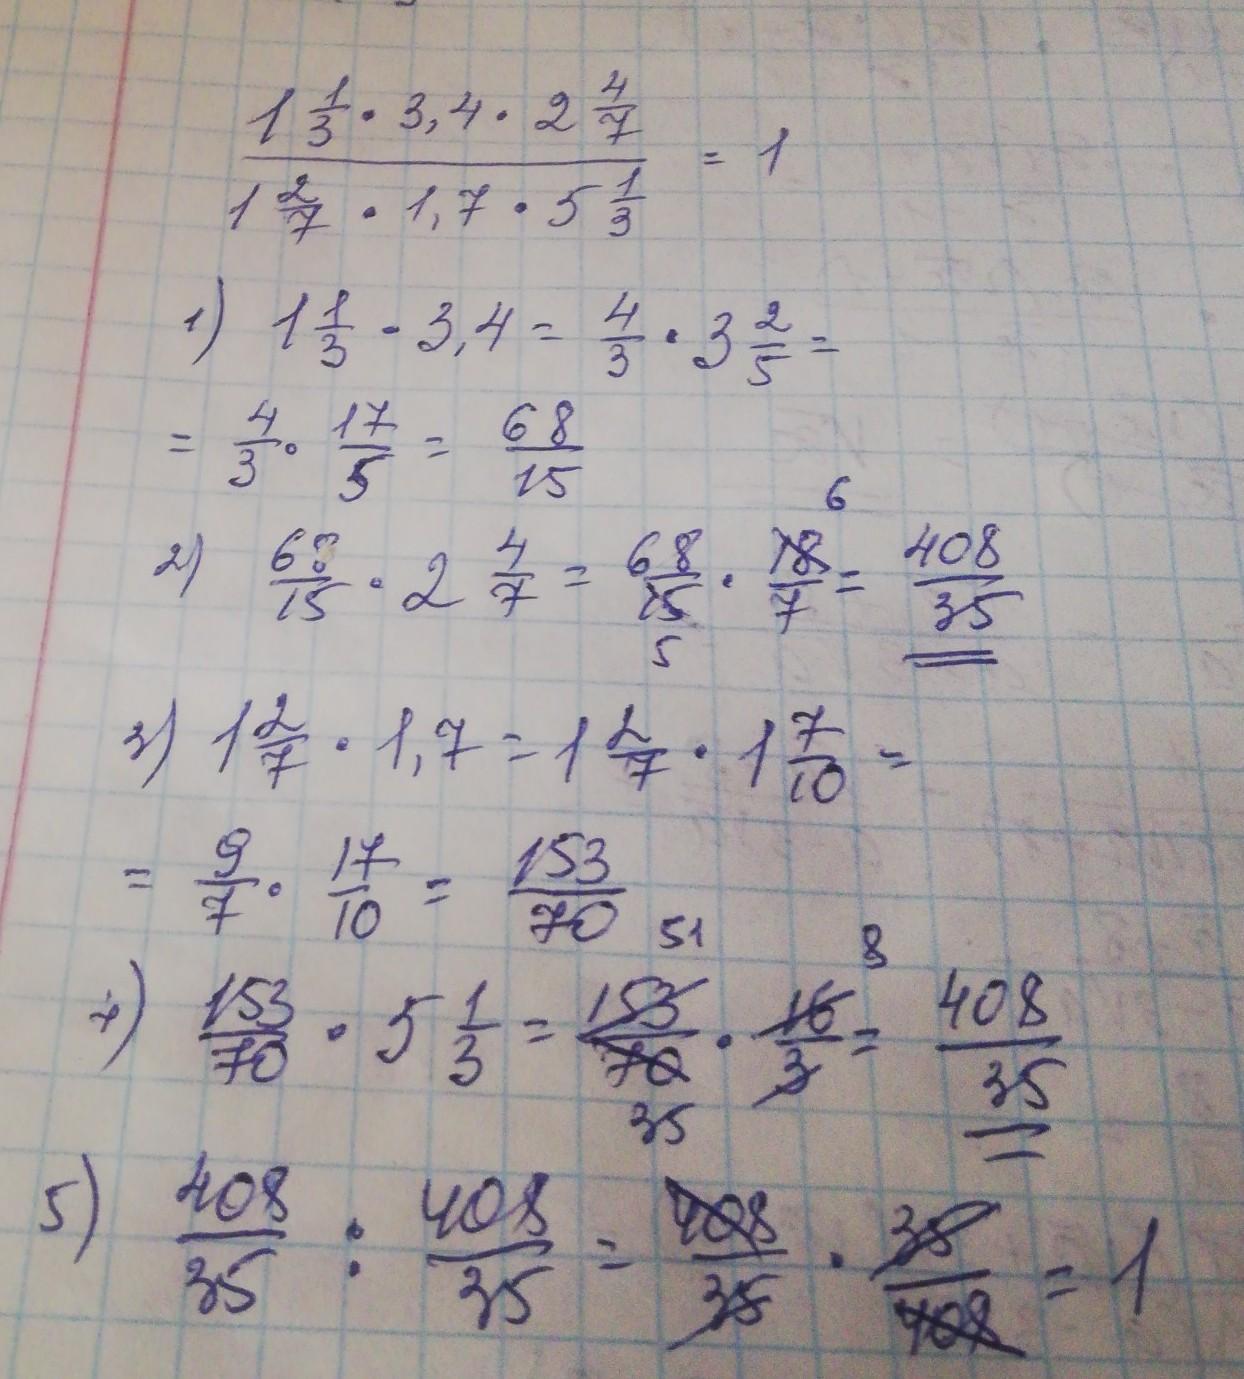 1 1/3 · 3,4 · 2 4/7
1 2/7 · 1,7 · 5 1/3 = 1
1) 1 1/3 · 3,4 = 4/3 · 3 2/5 =
= 4/3 · 17/5 = 68/15
6
2) 68/15 · 2 4/7 = 68/15 · 18/7 = 408/35
5
3) 1 2/7 · 1,7 = 1 2/7 · 1 7/10 =
= 9/7 · 17/10 = 153/70
51 8
4) 153/70 · 5 1/3 = 153/70 · 16/3 = 408/35
35
5) 408/35 : 408/35 = 408/35 · 35/408 = 1